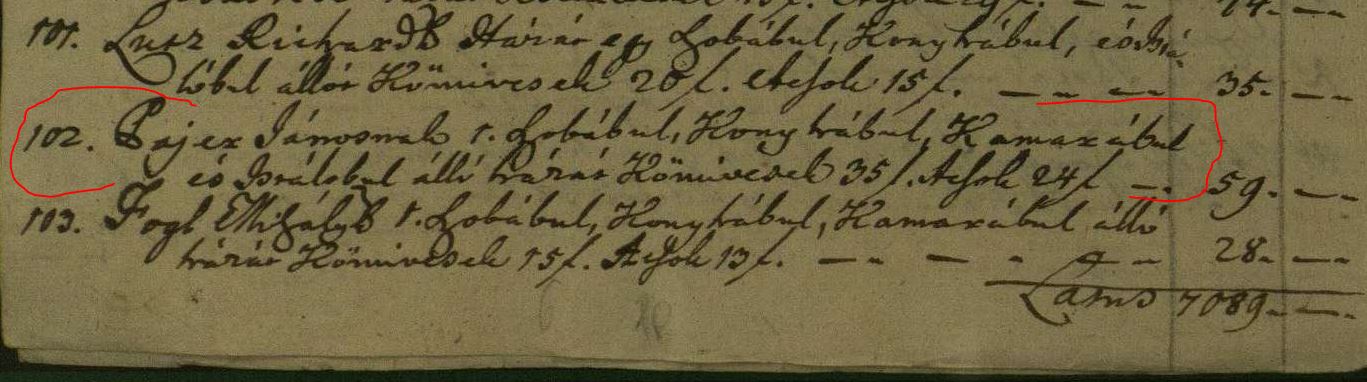 101. Lusz Richard Házát egy Szobábul, Konyhábul, és Istá-
lóbul állót Kőmivesek 20 f. Atsok 15 f. — — — — 35. —
102. Pajer Jánosnak 1. Szobábul, Konyhábul, Kamarábul
és Istálobul álló házát Kőmivesek 35 f. Atsok 24 f — . 59. —
103. Fogl Mihály 1. Szobábul, Konyhábul, Kamarábul álló
házát Kőmivesek 15 f. Atsok 13 f. — — — — 28. —
Latus 7089. —